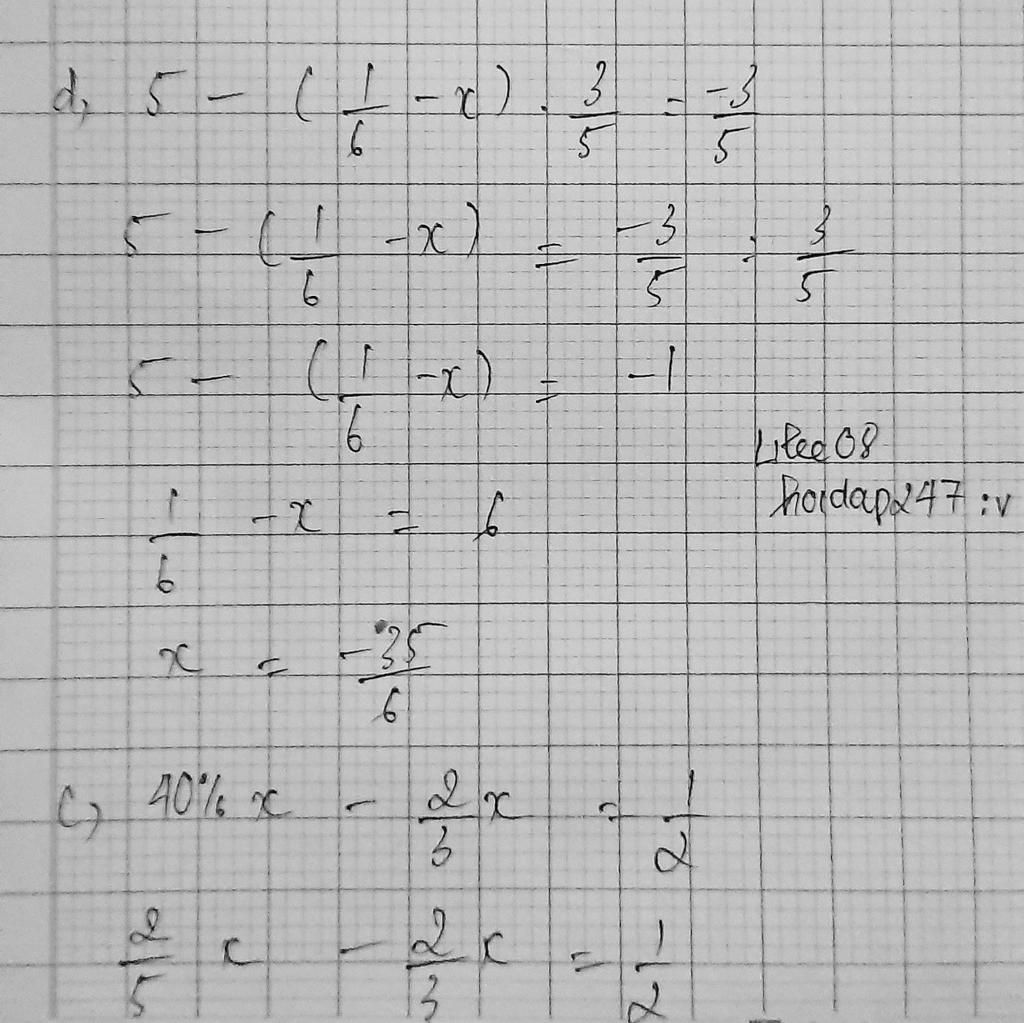 d, 5 - (1/6 - x) . 3/5 = -3/5
5 - (1/6 - x) = -3/5 : 3/5
5 - (1/6 - x) = -1
1/6 - x = 6
hoidap247 :v
x = -35/6
c, 40% x - 2/3 x = 1/2
2/5 x - 2/3 x = 1/2